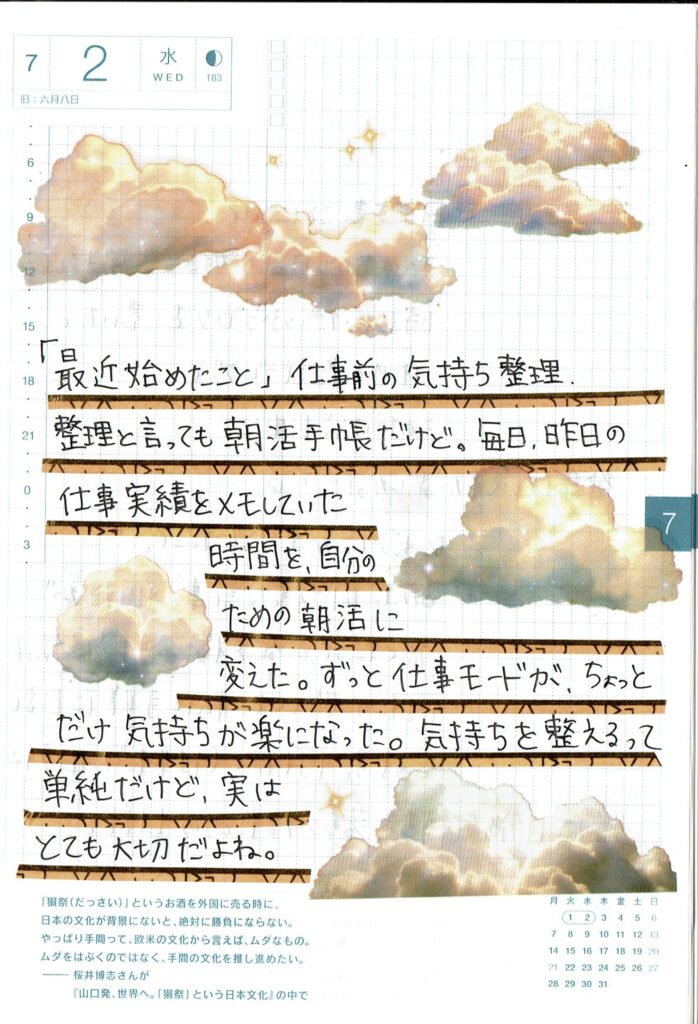 7 2 水 WED 183
旧：六月八日
6
9
12
15
18
21
0
3
「最近始めたこと」仕事前の気持ち整理.
整理と言っても朝活手帳だけど。毎日,昨日の
仕事実績をメモしていた
時間を,自分の
ための朝活に
変えた。ずっと仕事モードが,ちょっと
だけ気持ちが楽になった。気持ちを整えるって
単純だけど,実は
とても大切だよね。
7
「獺祭（だっさい）」というお酒を外国に売る時に、
日本の文化が背景にないと、絶対に勝負にならない。
やっぱり手間って、欧米の文化から言えば、ムダなもの。
ムダをはぶくのではなく、手間の文化を推し進めたい。
―― 桜井博志さんが
『山口発、世界へ。「獺祭」という日本文化』の中で
月 火 水 木 金 土 日
1 2 3 4 5 6
7 8 9 10 11 12 13
14 15 16 17 18 19 20
21 22 23 24 25 26 27
28 29 30 31